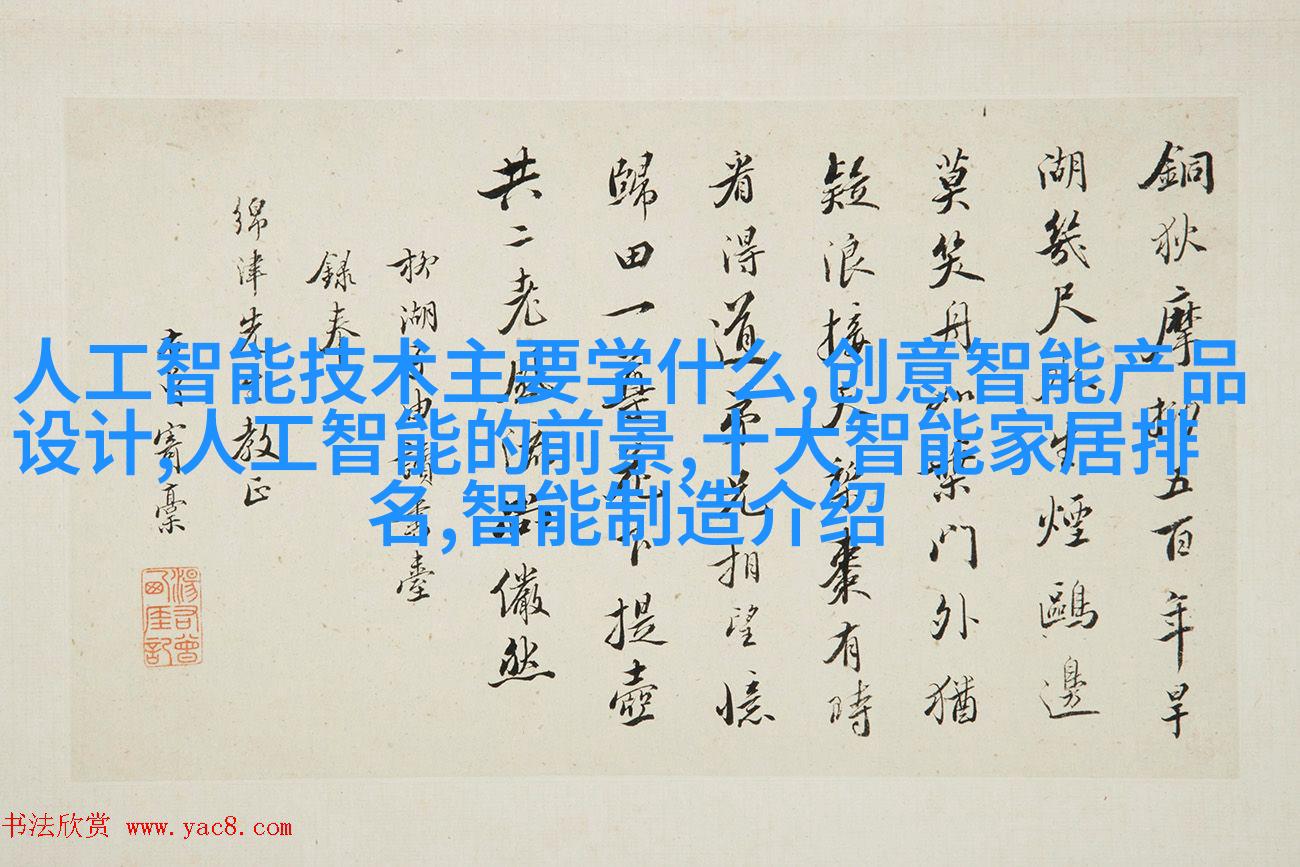 銅狄摩挲五百年旱
湖幾尺
生煙鷗邊
莫笑丹
柴門外猶
疑浪接天
棗有時
看得道
兄相望憶
歸田一
下提壺
共二老風流
儼然
柳湖
讀書臺
錄奉
綿津先生教正
寄稾
人工智能技术主要学什么,创意智能产品
设计,人工智能的前景,十大智能家居排
名,智能制造介绍
书法欣赏 www.yac8.com